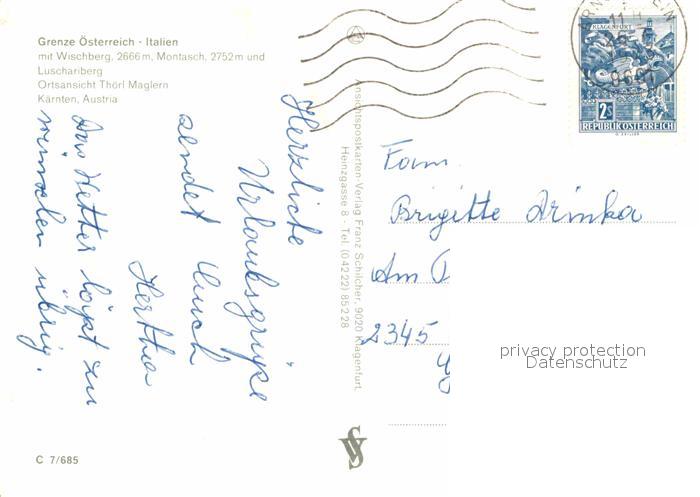 Grenze Österreich - Italien
mit Wischberg, 2666 m, Montasch, 2752 m und
Luschariberg
Ortsansicht Thörl Maglern
Kärnten, Austria
Herzliche
Urlaubsgrüße
sendet Euch
Hertha
Das Wetter läßt zu
wünschen übrig.
C 7/685
Ansichtspostkarten-Verlag Franz Schilcher, 9020 Klagenfurt,
Heinzgasse 8 - Tel. (04222) 85228
KLAGENFURT
2S
REPUBLIK ÖSTERREICH
Fam.
Brigitte
Am
2345
privacy protection
Datenschutz